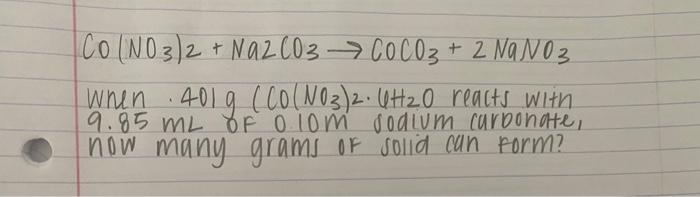 Co(NO3)2 + Na2CO3 → CoCO3 + 2 NaNO3
When .401g (Co(NO3)2·6H2O reacts with
9.85 mL of 0.10M sodium carbonate,
how many grams of solid can form?